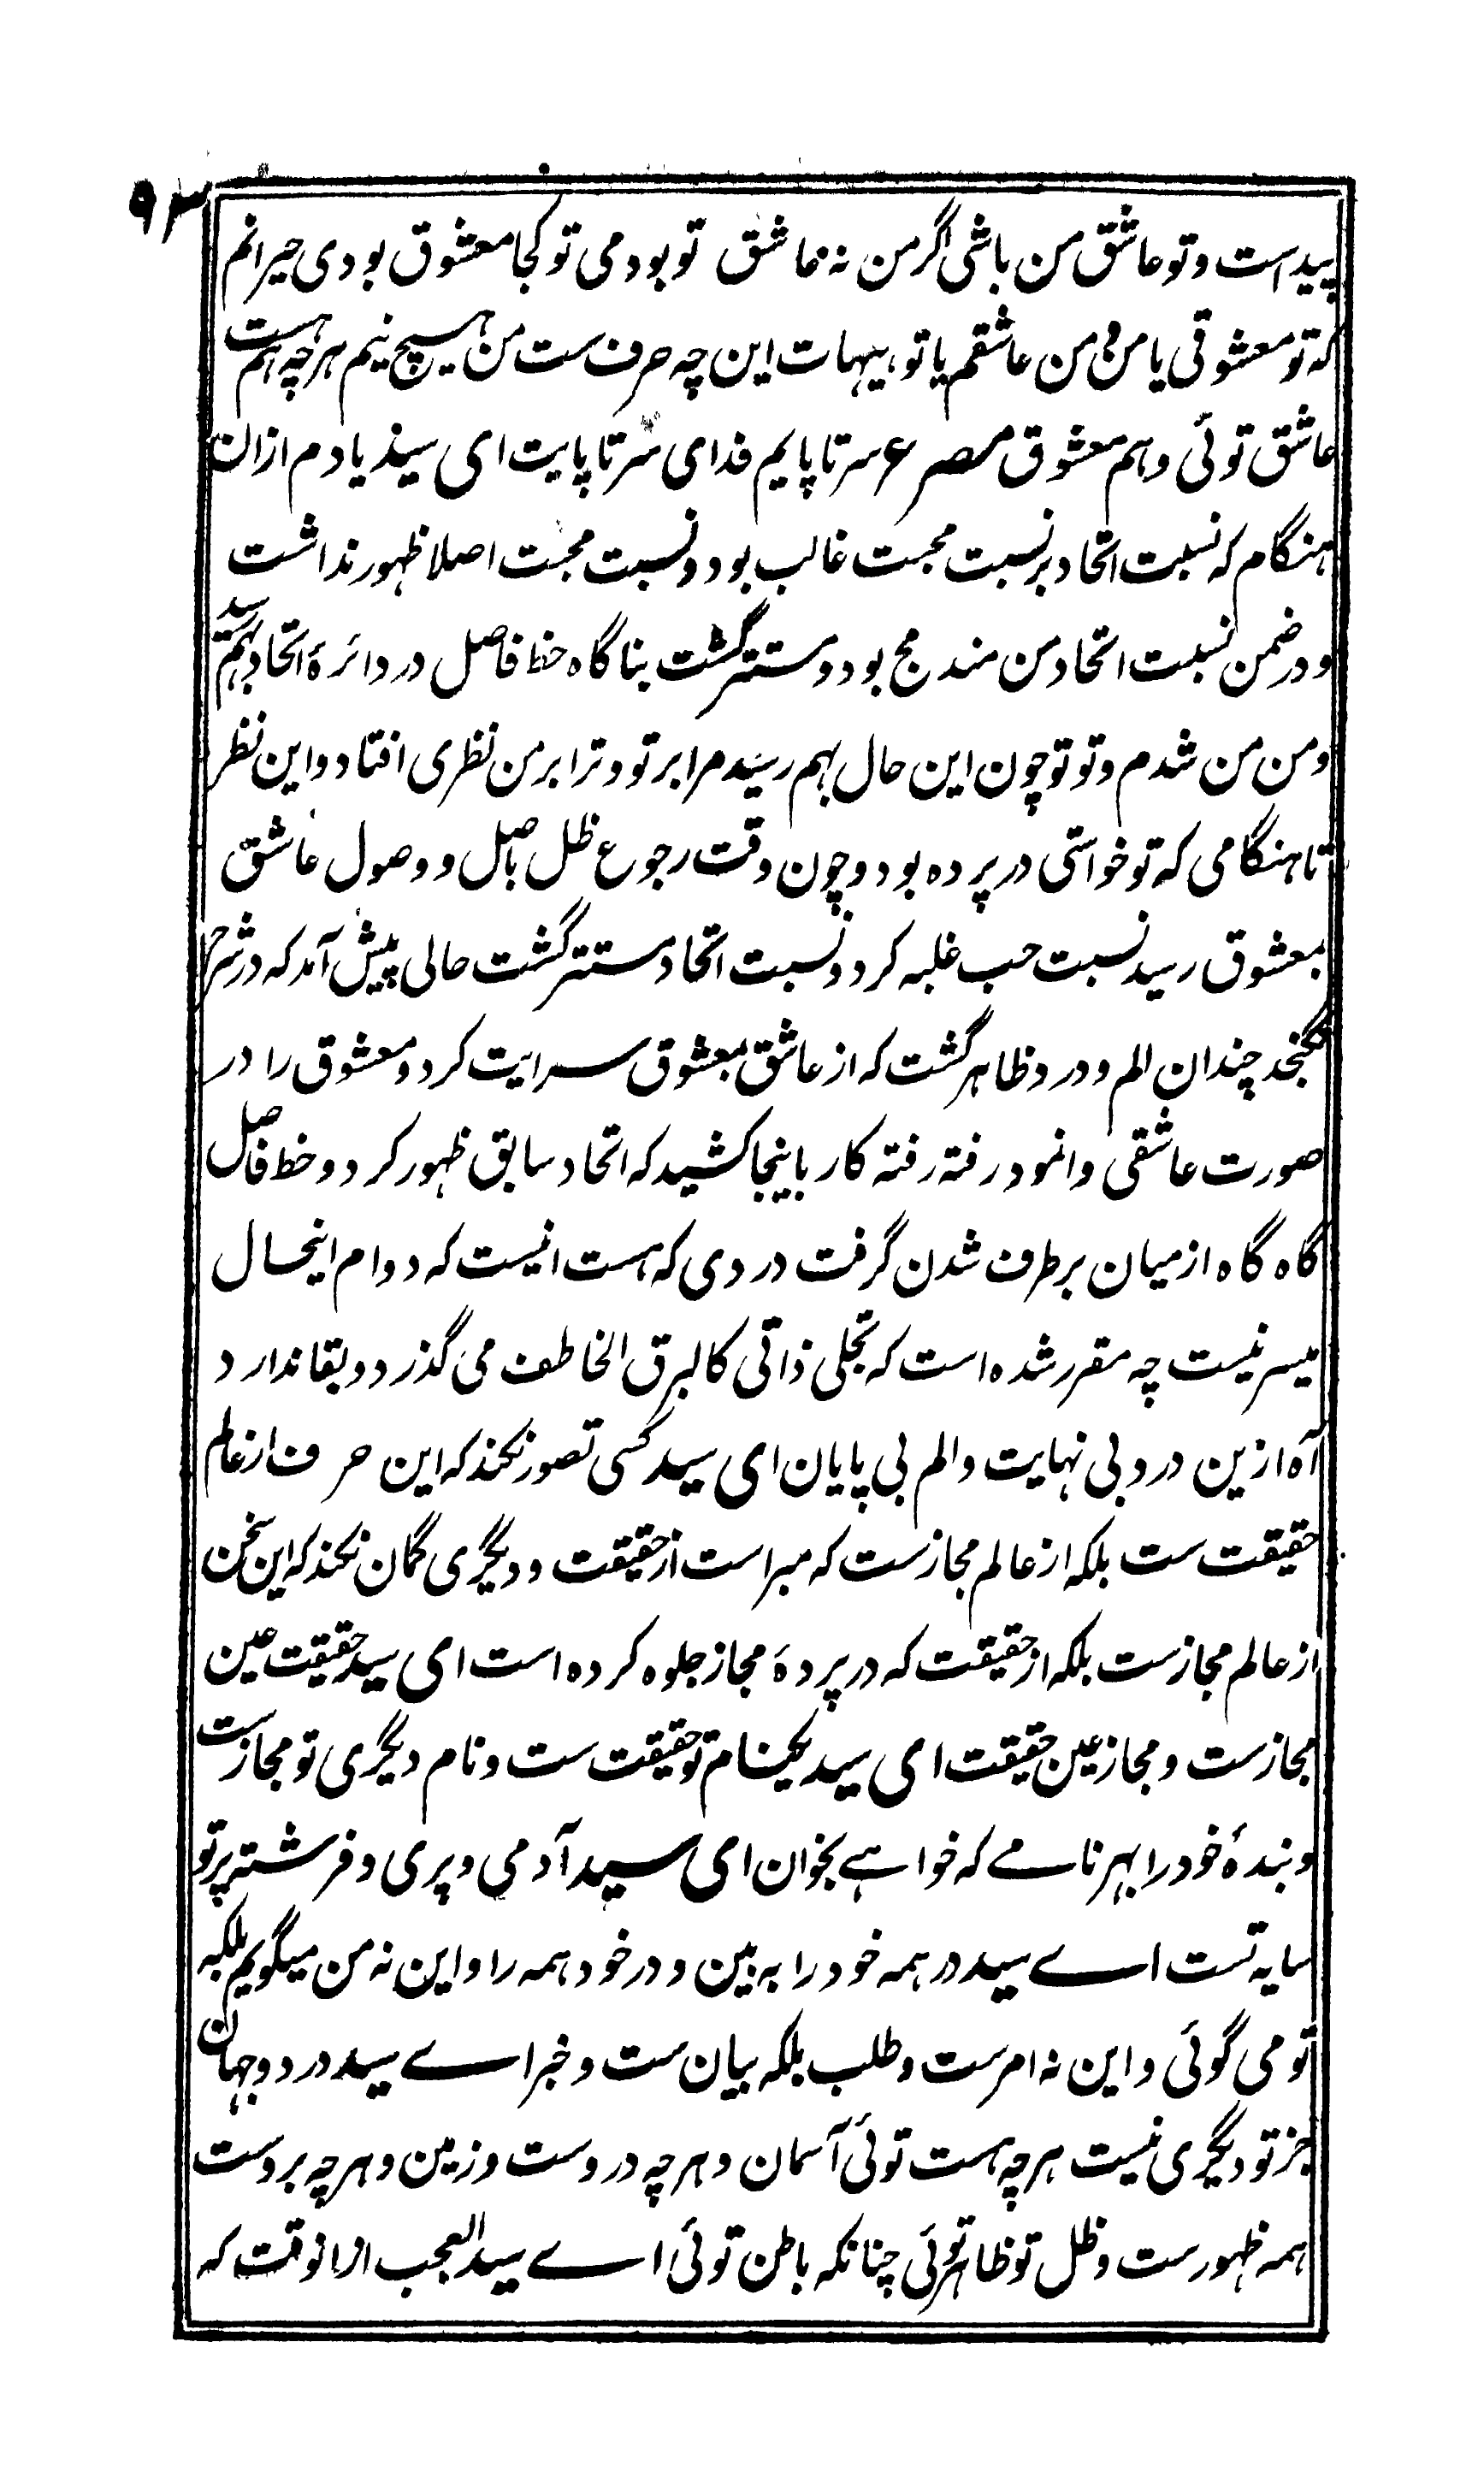 ۹۳
پیداست و تو عاشق من باشی اگر من نه عاشق تو بودمی تو کجا معشوق بودی حیرانم
که تو معشوقی یا من و من عاشقم یا تو ہیہات این چہ حرف ست من ہیچ نیم ہر چہ ہست ہم
عاشق توئی و ہم معشوق مصرع سرتا پایم فدای سرتا پایت ای سید یادم ازان
ہنگام کہ نسبت اتحاد بر نسبت محبت غالب بود و نسبت محبت اصلا ظہور نداشت
و در ضمن نسبت اتحاد من مندمج بود و مستتر گشت بناگاہ خط فاصل در دائرۂ اتحاد بہم رسید
و من من شدم و تو تو چون این حال بہم رسید مرا بر تو و ترا بر من نظری افتاد و این نظر
تا ہنگامی کہ تو خواستی در پردہ بود و چون وقت رجوع ظل باصل و وصول عاشق
بمعشوق رسید نسبت حب غلبہ کرد و نسبت اتحاد مستتر گشت حالی پیش آمد کہ در شرح
نگنجد چندان الم و درد ظاہر گشت کہ از عاشق بمعشوق سرایت کرد و معشوق را در
صورت عاشقی وانمود رفتہ رفتہ کار باینجا کشید کہ اتحاد سابق ظہور کرد و خط فاصل
گاہ گاہ از میان برطرف شدن گرفت دردی کہ ہست انیست کہ دوام اینحال
میسر نیست چہ مقرر شدہ است کہ تجلی ذاتی کالبرق الخاطف می گذرد و بقا ندارد
آہ ازین درد بی نہایت و الم بی پایان ای سید کسی تصور نکند کہ این حرف از عالم
حقیقت ست بلکہ از عالم مجازست کہ مبراست از حقیقت و دیگری گمان نکند کہ این سخن
از عالم مجازست بلکہ از حقیقت کہ در پردۂ مجاز جلوہ کردہ است ای سید حقیقت عین
مجازست و مجاز عین حقیقت ای سید یکنام تو حقیقت ست و نام دیگری تو مجازست
و بندۂ خود را بہر نامے کہ خواہے بخوان ای سید آدمی و پری و فرشتہ پرتو
سایہ تست اے سید در ہمہ خود را بہ بین و در خود ہمہ را و این نہ من میگویم بلکہ
تو می گوئی و این نہ امرست و طلب بلکہ بیان ست و خبر اے سید در دو جہان
جز تو دیگری نیست ہر چہ ہست توئی آسمان و ہر چہ دروست و زمین و ہر چہ بروست
ہمہ ظہورست و ظل تو ظاہر توئی چنانکہ باطن توئی اے سید العجب ازانوقت کہ